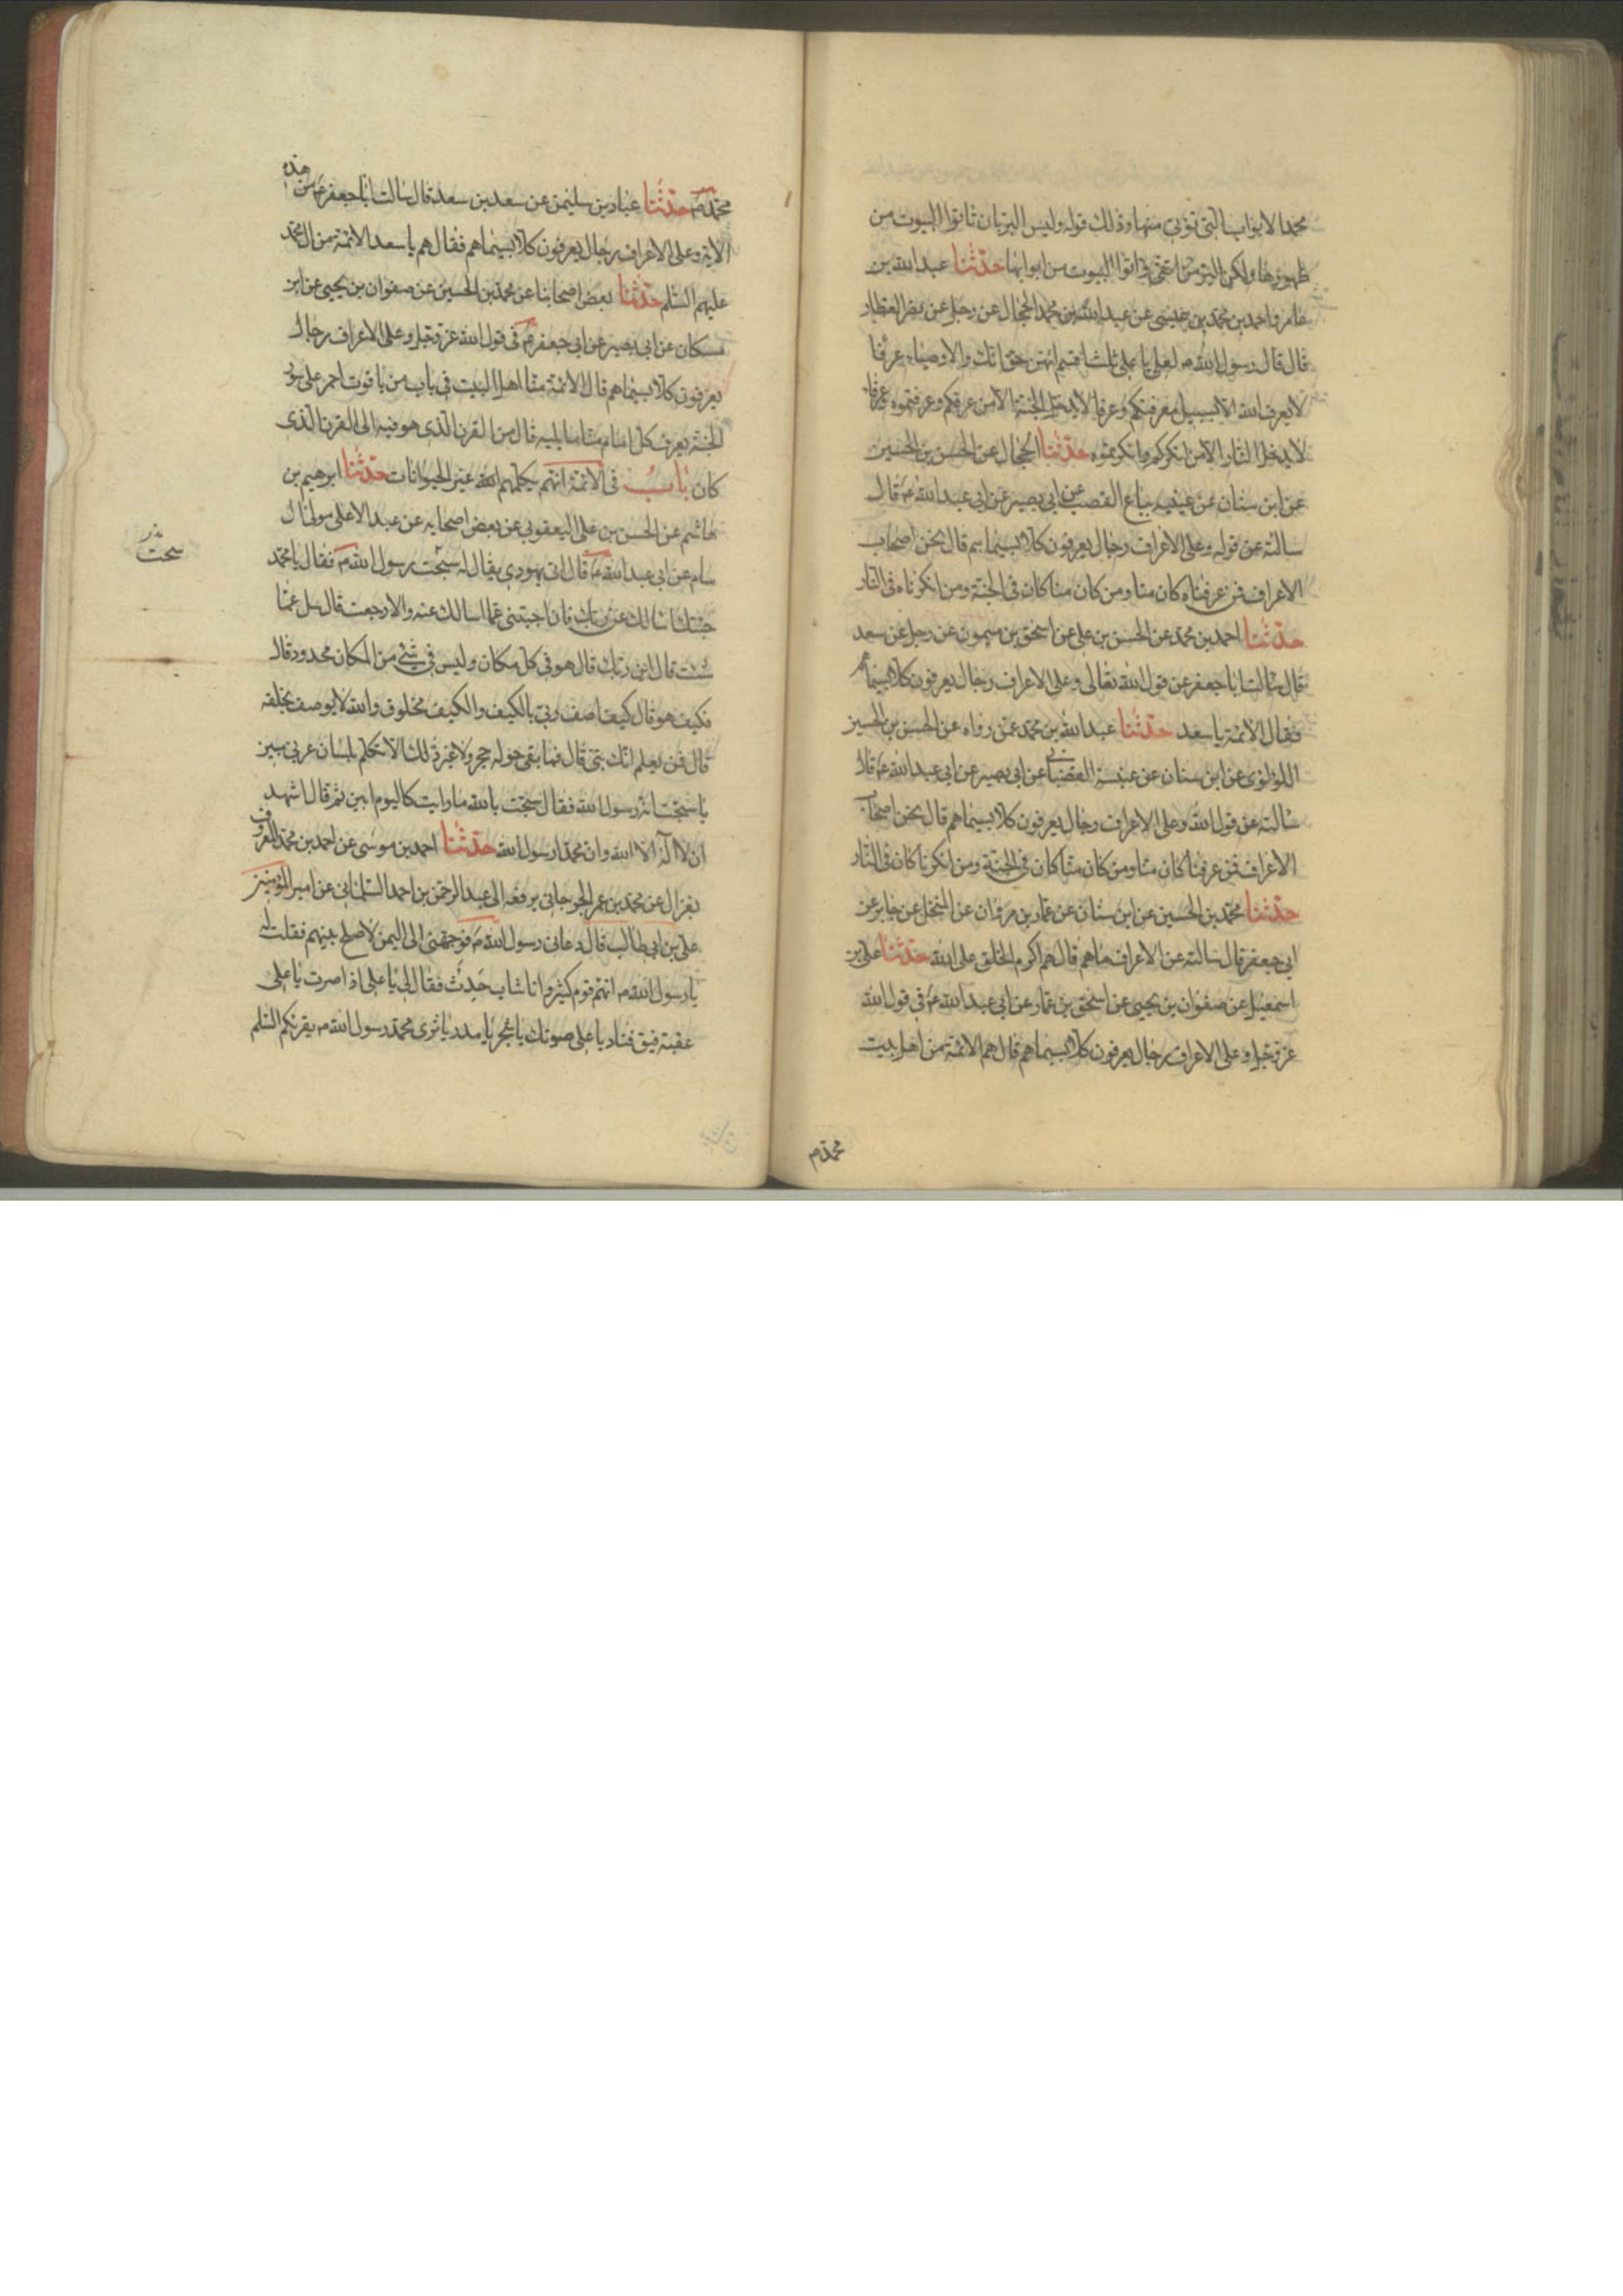 محمدا لابواب التى توتى منها وذلك قوله وليس البر بان تاتوا البيوت من
ظهورها ولكن البر من اتقى واتوا البيوت من ابوابها حدثنا عبد الله بن
عامر واحمد بن محمد بن عيسى عن عبد الله بن محمد الحجال عن رجل عن نصر العطار
قال قال رسول الله ص لعلى يا على ثلث اقسم انهن حق انك والاوصياء عرفا
لا يعرف الله الا بسبيل معرفتكم وعرفا لا يدخل الجنة الا من عرفكم وعرفتموه وعرفا
لا يدخل النار الا من انكركم وانكرتموه حدثنا الحجال عن الحسن بن الحسين
عن ابن سنان عن عيينه بياع القصب عن ابى بصير عن ابى عبد الله ع قال
سالته عن قوله وعلى الاعراف رجال يعرفون كلا بسيماهم قال نحن اصحاب
الاعراف فمن عرفناه كان منا ومن كان منا كان فى الجنة ومن انكرناه فى النار
حدثنا احمد بن محمد عن الحسن بن على عن اسحق بن ميمون عن رجل عن سعد
قال سالت ابا جعفر عن قول الله تعالى وعلى الاعراف رجال يعرفون كلا بسيماهم
فقال الائمة يا سعد حدثنا عبد الله بن محمد عمن رواه عن الحسن بن الحسين
اللؤلؤى عن ابن سنان عن عنبسة القصبانى عن ابى بصير عن ابى عبد الله ع قال
سالته عن قول الله وعلى الاعراف رجال يعرفون كلا بسيماهم قال نحن اصحاب
الاعراف فمن عرفنا كان منا ومن كان منا كان فى الجنة ومن انكرنا كان فى النار
حدثنا محمد بن الحسين عن ابن سنان عن عمار بن مروان عن المنخل عن جابر عن
ابى جعفر قال سالته عن الاعراف ما هم قال هم اكرم الخلق على الله حدثنا على بن
اسمعيل عن صفوان بن يحيى عن اسحق بن عمار عن ابى عبد الله ع فى قول الله
عز وجل وعلى الاعراف رجال يعرفون كلا بسيماهم قال هم الائمة من اهل بيت
محمد ص
محمد ص حدثنا عباد بن سليمن عن سعد بن سعد قال سالت ابا جعفر ع عن هذه
الاية وعلى الاعراف رجال يعرفون كلا بسيماهم فقال هم يا سعد الائمة من ال محمد
عليهم السلم حدثنا بعض اصحابنا عن محمد بن الحسين عن صفوان بن يحيى عن ابن
مسكان عن ابى بصير عن ابى جعفر ع فى قول الله عز وجل وعلى الاعراف رجال
يعرفون كلا بسيماهم قال الائمة منا اهل البيت فى باب من ياقوت احمر على سور
الجنة يعرف كل امام منا ما يليه قال من القرن الذى هو فيه الى القرن الذى
كان باب فى الائمة انهم يكلمهم الله غير الحيوانات حدثنا ابرهيم بن
هاشم عن الحسن بن على اليعقوبى عن بعض اصحابه عن عبد الاعلى مولى ال
سام عن ابى عبد الله ع قال اتى يهودى يقال له سبحت رسول الله ص فقال يا محمد
جئتك اسالك عن ربك فان اجبتنى عما اسالك عنه والا رجعت قال سل عما
شئت قال اين ربك قال هو فى كل مكان وليس فى شئ من المكان محدود قال
فكيف هو قال كيف اصف ربى بالكيف والكيف مخلوق والله لا يوصف بخلقه
قال فمن يعلم انك نبى قال فما بقى حوله حجر ولا غير ذلك الا تكلم بلسان عربى مبين
يا سبحت انه رسول الله فقال سبحت بالله ما رايت كاليوم ابين ثم قال اشهد
ان لا اله الا الله وان محمدا رسول الله حدثنا احمد بن موسى عن احمد بن محمد المعروف
بغزال عن محمد بن عمر الجرجانى يرفعه الى عبد الرحمن بن احمد السلمانى عن امير المؤمنين
على بن ابى طالب قال دعانى رسول الله ص فوجهنى الى اليمن لاصلح بينهم فقلت له
يا رسول الله ص انهم قوم كثير وانا شاب حدث فقال لى يا على اذا صرت باعلى
عقبة فيق فناد باعلى صوتك يا شجر يا مدر يا ثرى محمد رسول الله ص يقرئكم السلم
سحت